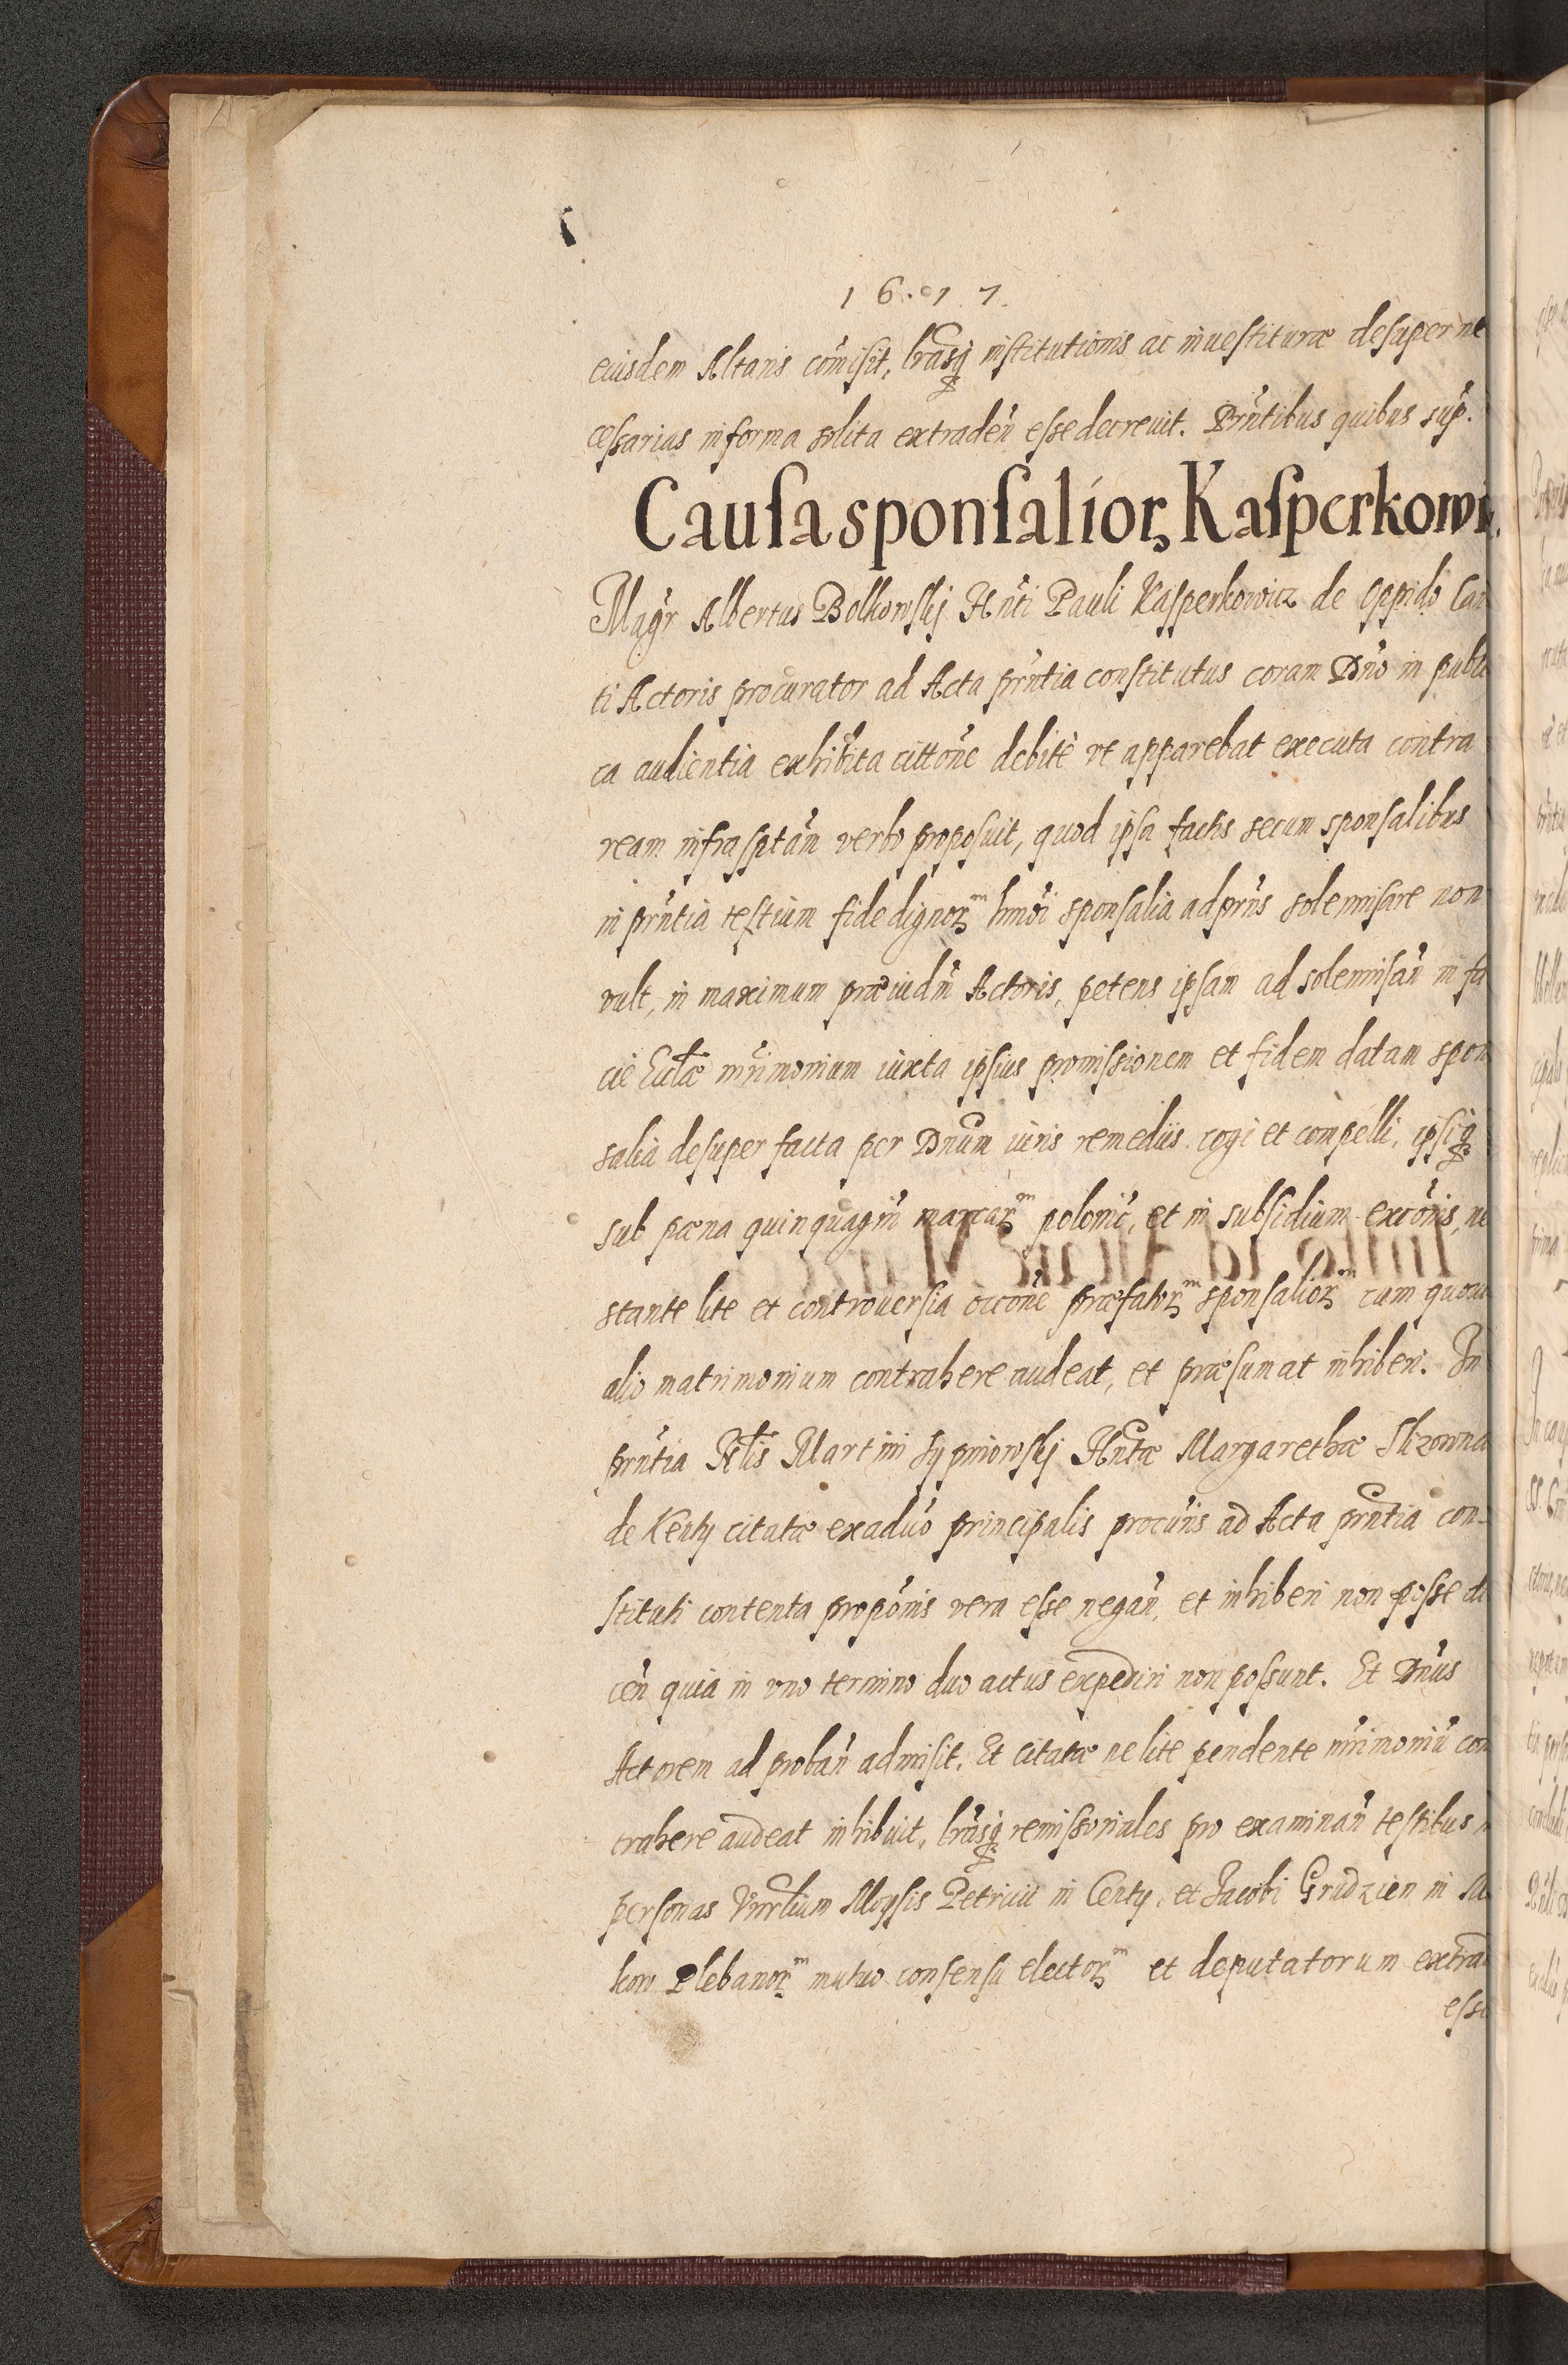 1 6 . 1 7.
eiusdem Altaris cōmisit, lrāsq̨ institutionis ac inuestituræ desuper ne
cessarias in forma solita extradeñ esse decreuit. Prñtibus quibus sup̃.
Causa sponsalioꝝ Kasperkowi
Magr̃ Albertus Bolkowskj Hñti Pauli Kasperkowicz de Oppido Can
ti Actoris procurator ad Acta prñtia constitutus coram Dñō in publi
ca audientia exhibita cittõne debitè vt apparebat executa contra
ream infrasptañ verbo proposuit, quod ipsa factis secum sponsalibus
in prñtia testium fide dignoꝝᵐ hmõi sponsalia ad prñs solemnisare non
vult, in maximum præiudm̃ Actoris, petens ipsam ad solemnisañ in fa
cie Ecclæ mr̃imonium iuxta ipsius promissionem et fidem datam spon
salia desuper facta per Dnum iuris remediis cogi et compelli, ipsiq̨
sub pœna quinquagm̃ marcaꝝᵐ polonic̃, et in subsidium excõnis, ne
stante lite et controuersia occõne præfatoꝝᵐ sponsalioꝝᵐ cum quouis
alio matrimonium contrahere audeat, et præsumat inhiberi. In
prñtia Martini Sypniowskj Hntæ Margarethæ Slizowna
de Kenty citatæ ex aduõ principalis procur̃is ad Acta prñtia con-
stituti contenta propõnis vera esse negañ, et inhiberi non posse di
ceñ quia in vno termino duo actus expediri non possunt. Et Dñus
Actorem ad probañ admisit. Et citatæ ne lite pendente mr̃imoniũ con
trahere audeat inhibuit, lrãsq̨ remissoriales pro examinañ testibus
personas Vnrlium Moysis Petricii in Centy, et Jacobi Grudzien in
kow Plebanoꝝᵐ mutuo consensu electoꝝᵐ et deputatorum extrad
esse